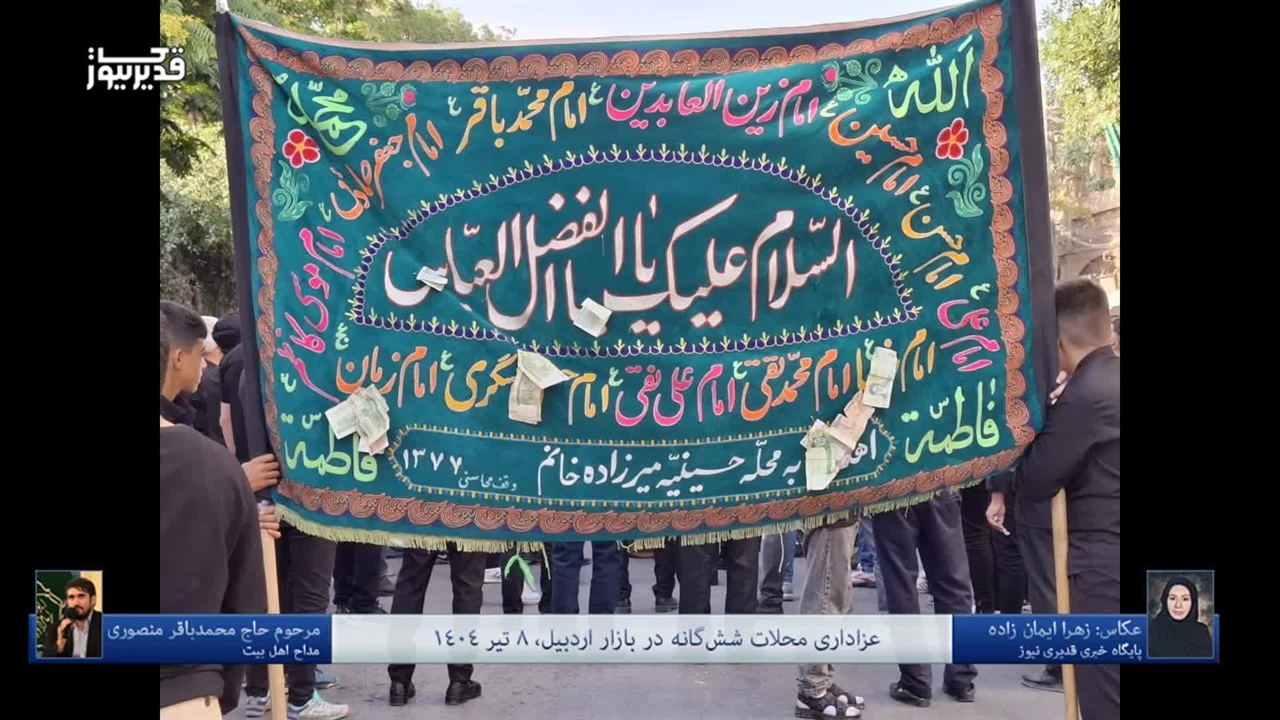 قدیر نیوز
الله
محمد
امام حسین ع
امام زین العابدین ع
امام محمد باقر ع
امام جعفر صادق ع
امام حسن ع
امام علی ع
امام موسی کاظم ع
السلام علیک یا ابا الفضل العباس
امام محمد تقی ع امام علی نقی ع امام عسگری ع امام زمان عج
فاطمة
فاطمة
به محلّه حسینیّه میرزاده خانم
وقف محاسنی ۱۳۷۷
عکاس: زهرا ایمان زاده
پایگاه خبری قدیری نیوز
عزاداری محلات شش‌گانه در بازار اردبیل، ۸ تیر ۱۴۰۴
مرحوم حاج محمدباقر منصوری
مداح اهل بیت